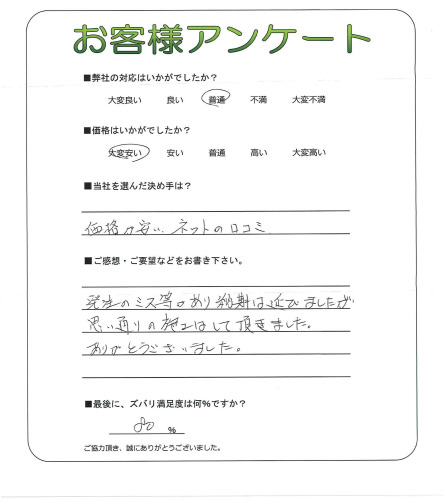 お客様アンケート
■弊社の対応はいかがでしたか?
大変良い 良い 普通 不満 大変不満
■価格はいかがでしたか?
大変安い 安い 普通 高い 大変高い
■当社を選んだ決め手は?
価格が安い、ネットの口コミ
■ご感想・ご要望などをお書き下さい。
発注のミス等もあり納期は延びましたが
思い通りの施工はして頂きました。
ありがとうございました。
■最後に、ズバリ満足度は何%ですか?
80 %
ご協力頂き、誠にありがとうございました。